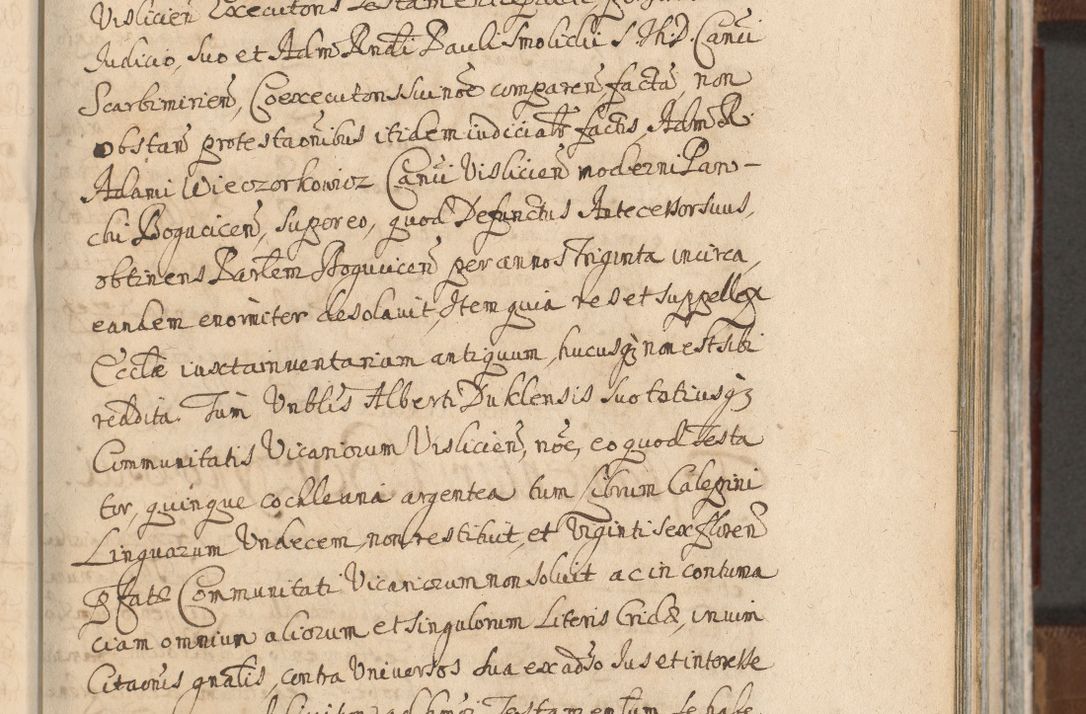 Vislicień Executoris Testamenti
Judicio, suo et Adm Rndi Pauli Smolicki S. Th. D. Canci
Scarbimirień, Coexecutoris sui noe compareń facta, non
obstań protestaonibus itidem iudicialr factis Adm R.
Adami Wieczorkowicz Canci Vislicień moderni Paro-
chi Boguciceń, super eo, quod Defunctus Antecessor suus,
obtinens Parlem Boguciceń per annos Triginta in circa,
eandem enormiter desolavit, Item quia res et suppellex
Ecclae iuxta inventarium antiquum, hucusq3 non est sibi
reddita. Tum Vnblis Alberti Duklensis suo totiusq3
Communitatis Vicariorum Vislicień, noe, eo quod Testa
tor, quinque cochlearia argentea tum librum Calepini
Linguarum Vndecem, non restituit, et Viginti sex floreń
pfatae Communitati Vicariorum non solvit ac in contuma
ciam omnium aliorum et singulorum Literis Cridae, in vim
Citaonis gnalis, contra Universos sua ex adso Ius et interesse
Testamentum se habe